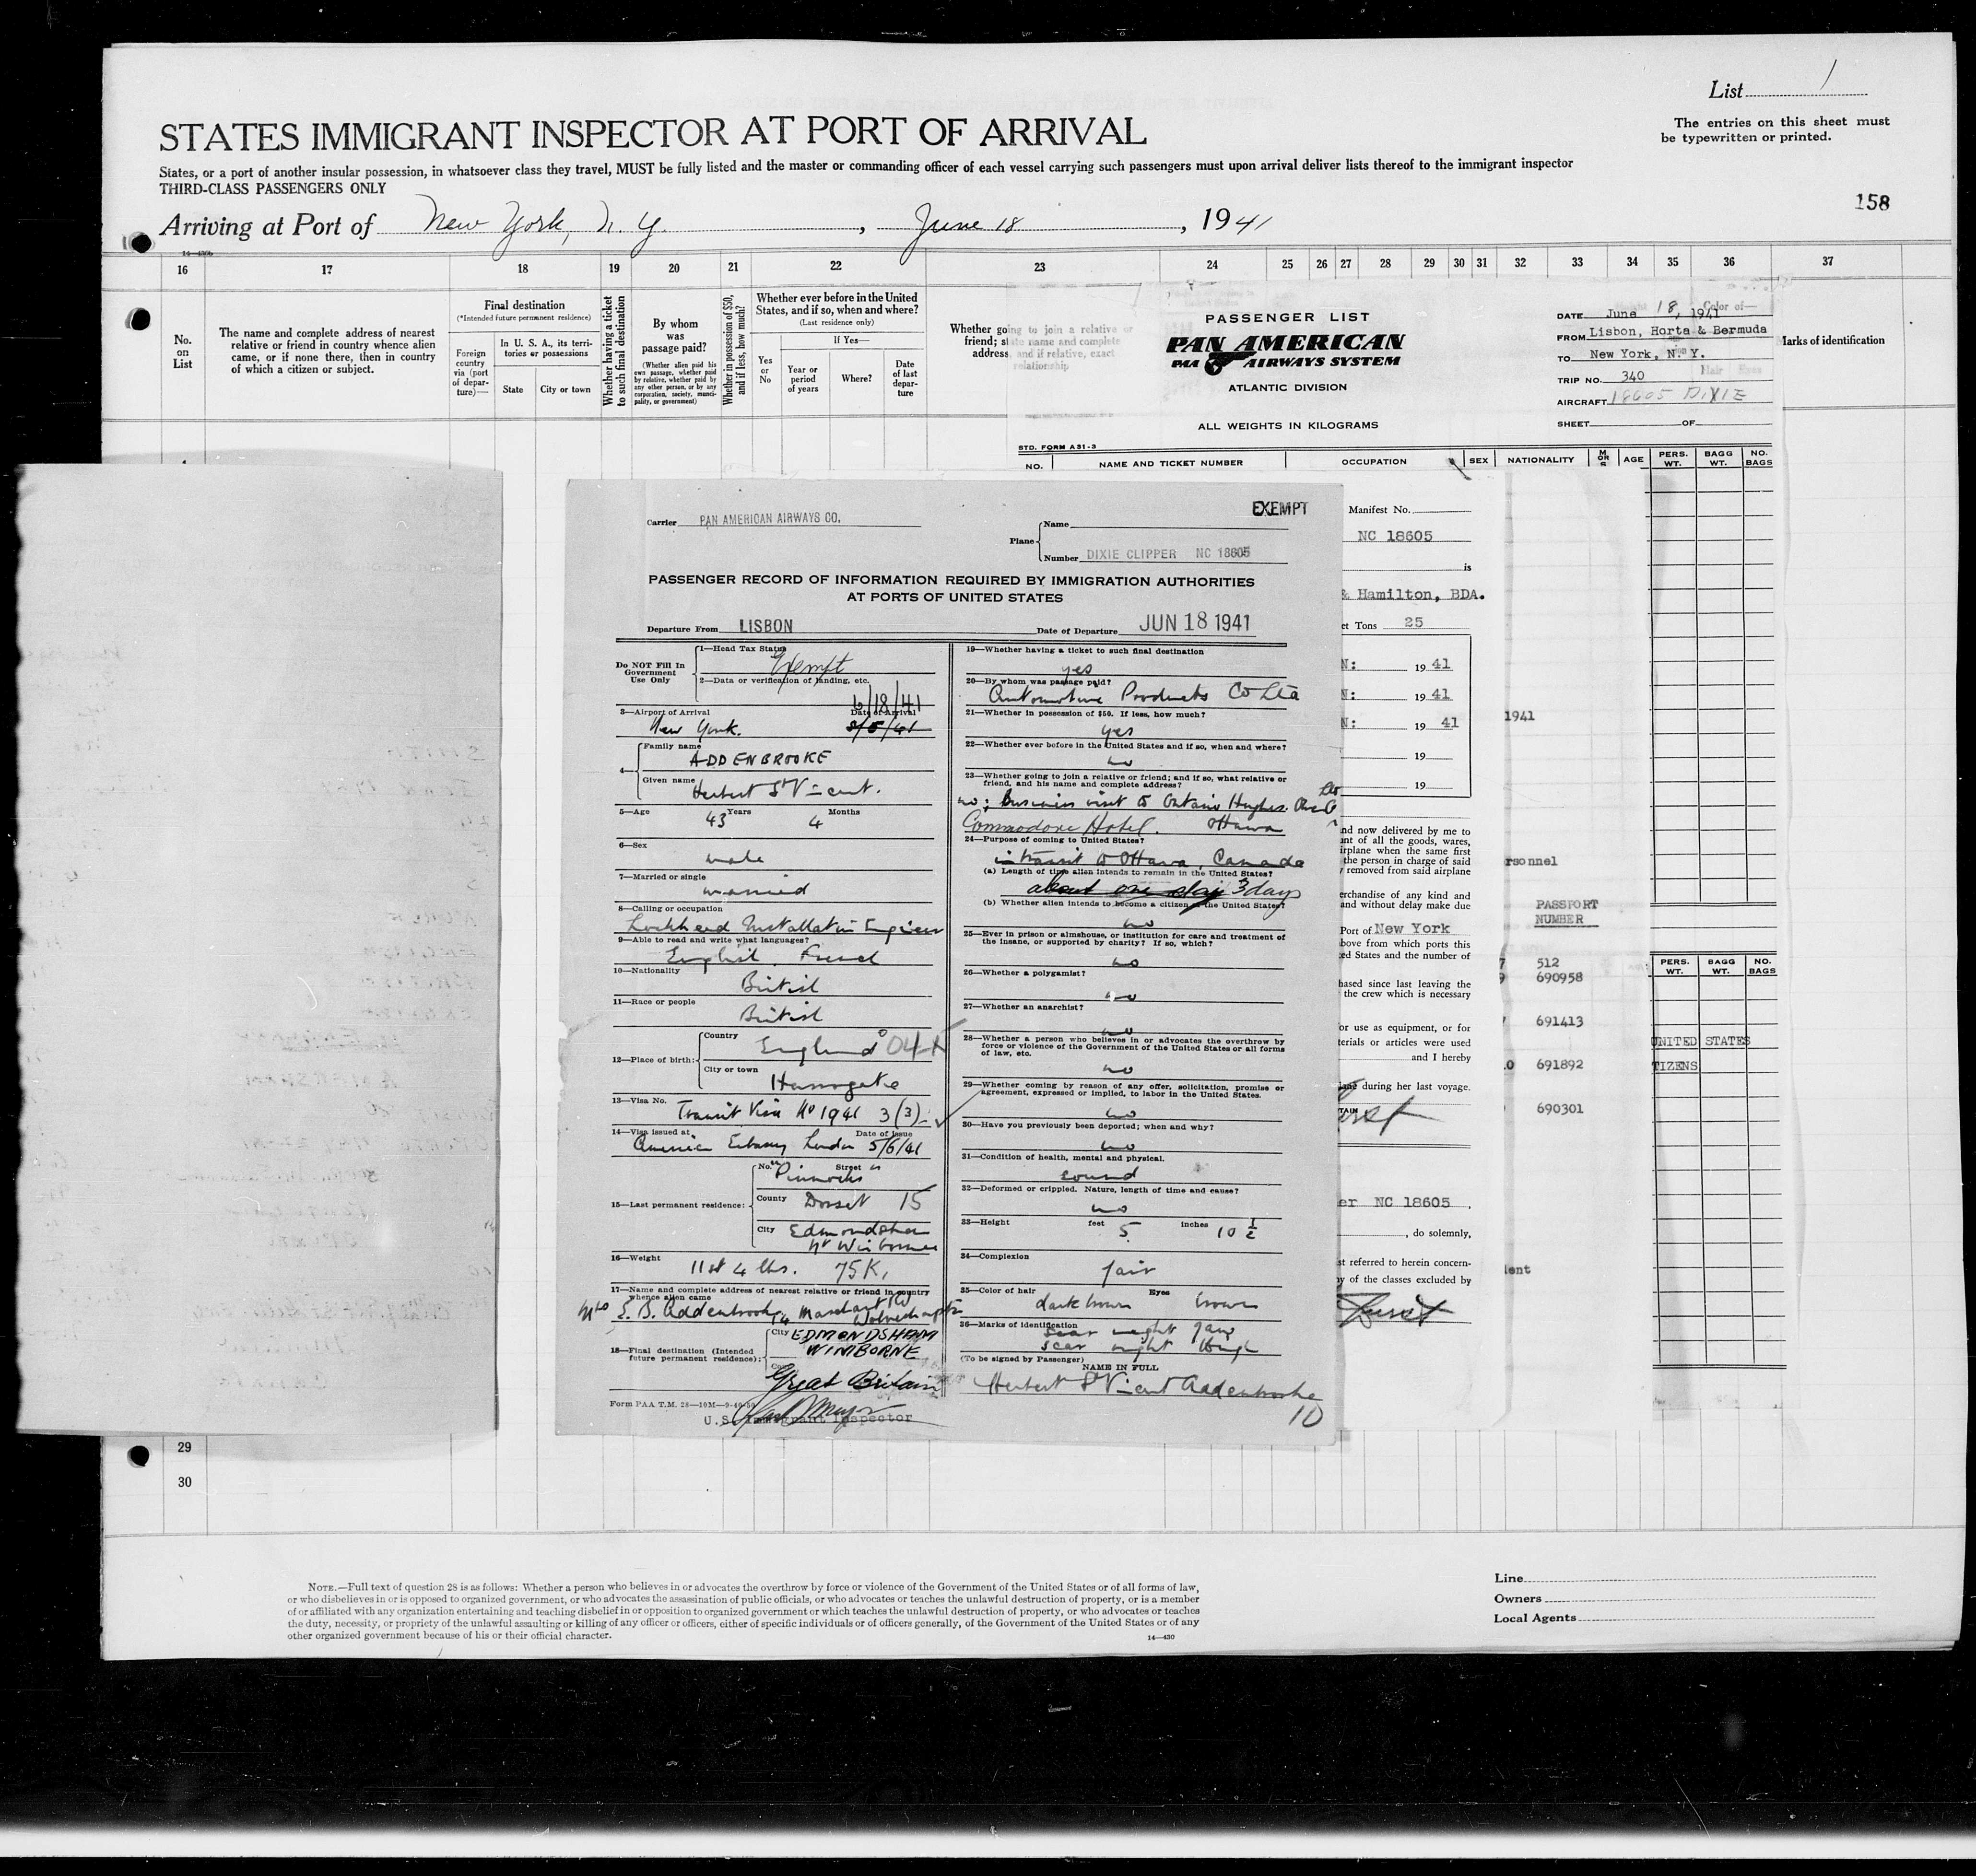 List 1
The entries on this sheet must
be typewritten or printed.
STATES IMMIGRANT INSPECTOR AT PORT OF ARRIVAL
States, or a port of another insular possession, in whatsoever class they travel, MUST be fully listed and the master or commanding officer of each vessel carrying such passengers must upon arrival deliver lists thereof to the immigrant inspector
THIRD-CLASS PASSENGERS ONLY
158
Arriving at Port of New York, N. Y. , June 18 , 1941
16 17 18 19 20 21 22 23 24 25 26 27 28 29 30 31 32 33 34 35 36 37
No.
on
List
The name and complete address of nearest
relative or friend in country whence alien
came, or if none there, then in country
of which a citizen or subject.
Final destination
(*Intended future permanent residence)
Foreign
country
via (port
of depar-
ture)—
In U. S. A., its terri-
tories or possessions
State City or town
Whether having a ticket
to such final destination
By whom
was
passage paid?
(Whether alien paid his
own passage, whether paid
by relative, whether paid by
any other person, or by any
corporation, society, munici-
pality, or government)
Whether in possession of $50,
and if less, how much?
Whether ever before in the United
States, and if so, when and where?
(Last residence only)
Yes
or
No
If Yes—
Year or
period
of years
Where?
Date
of last
depar-
ture
Whether going to join a relative or
friend; state name and complete
address, and if relative, exact
relationship
Marks of identification
PASSENGER LIST
PAN AMERICAN
PAA AIRWAYS SYSTEM
ATLANTIC DIVISION
ALL WEIGHTS IN KILOGRAMS
DATE June 18, 1941
FROM Lisbon, Horta & Bermuda
TO New York, N. Y.
TRIP NO. 340
AIRCRAFT 18605 DIXIE
SHEET OF
STD. FORM A31-3
NO. NAME AND TICKET NUMBER OCCUPATION SEX NATIONALITY M OR S AGE PERS. WT. BAGG WT. NO. BAGS
EXEMPT
Carrier PAN AMERICAN AIRWAYS CO.
Plane
Name
Number DIXIE CLIPPER NC 18605
PASSENGER RECORD OF INFORMATION REQUIRED BY IMMIGRATION AUTHORITIES
AT PORTS OF UNITED STATES
Departure From LISBON Date of Departure JUN 18 1941
Do NOT Fill In
Government
Use Only
1—Head Tax Status
Exempt
2—Data or verification of landing, etc.
6/18/41
3—Airport of Arrival Date of Arrival
New York.
4—
Family name
ADDENBROOKE
Given name
Herbert St Vincent.
5—Age Years Months
43 4
6—Sex
male
7—Married or single
married
8—Calling or occupation
Lockheed Installation Engineer
9—Able to read and write what languages?
English. French
10—Nationality
British
11—Race or people
British
12—Place of birth:
Country
England
City or town
Harrogate
13—Visa No.
Transit Visa No 1941 3(3)
14—Visa issued at Date of issue
American Embassy London 5/6/41
15—Last permanent residence:
No. Street
Pinnocks
County Dorset 15
City Edmondsham
Nr Wimborne
16—Weight
11st 4 lbs. 75 K.
17—Name and complete address of nearest relative or friend in country
whence alien came
E. B. Addenbrooke
18—Final destination (Intended
future permanent residence):
City EDMONDSHAM
WIMBORNE
Great Britain
Form PAA T.M. 28—10M—9-40
U.S. Immigrant Inspector
19—Whether having a ticket to such final destination
yes
20—By whom was passage paid?
Automotive Products Co Ltd
21—Whether in possession of $50. If less, how much?
yes
22—Whether ever before in the United States and if so, when and where?
no
23—Whether going to join a relative or friend; and if so, what relative or
friend, and his name and complete address?
no: Business visit to Ontario Hughes Owens Co Ltd
Commodore Hotel. Ottawa
24—Purpose of coming to United States?
in transit to Ottawa, Canada
(a) Length of time alien intends to remain in the United States?
about one day 3 days
(b) Whether alien intends to become a citizen of the United States?
no
25—Ever in prison or almshouse, or institution for care and treatment of
the insane, or supported by charity? If so, which?
no
26—Whether a polygamist?
no
27—Whether an anarchist?
no
28—Whether a person who believes in or advocates the overthrow by
force or violence of the Government of the United States or all forms
of law, etc.
no
29—Whether coming by reason of any offer, solicitation, promise or
agreement, expressed or implied, to labor in the United States.
no
30—Have you previously been deported; when and why?
no
31—Condition of health, mental and physical.
sound
32—Deformed or crippled. Nature, length of time and cause?
no
33—Height feet inches
5 10 1/2
34—Complexion
fair
35—Color of hair Eyes
dark brown brown
36—Marks of identification
scar right jaw
scar right thigh
(To be signed by Passenger)
NAME IN FULL
Herbert St Vincent Addenbrooke
10
Manifest No.
NC 18605
is
& Hamilton, BDA.
et Tons 25
N: 19 41
N: 19 41
N: 19 41
19
19
nd now delivered by me to
unt of all the goods, wares,
irplane when the same first
the person in charge of said
removed from said airplane
erchandise of any kind and
and without delay make due
Port of New York
bove from which ports this
ed States and the number of
hased since last leaving the
the crew which is necessary
or use as equipment, or for
terials or articles were used
and I hereby
during her last voyage.
er NC 18605 ,
, do solemnly,
st referred to herein concern-
y of the classes excluded by
1941
rsonnel
PASSPORT
NUMBER
512
690958
691413
691892
690301
dent
PERS. WT. BAGG WT. NO. BAGS
UNITED STATES
TIZENS
29
30
NOTE.—Full text of question 28 is as follows: Whether a person who believes in or advocates the overthrow by force or violence of the Government of the United States or of all forms of law,
or who disbelieves in or is opposed to organized government, or who advocates the assassination of public officials, or who advocates or teaches the unlawful destruction of property, or is a member
of or affiliated with any organization entertaining and teaching disbelief in or opposition to organized government or which teaches the unlawful destruction of property, or who advocates or teaches
the duty, necessity, or propriety of the unlawful assaulting or killing of any officer or officers, either of specific individuals or of officers generally, of the Government of the United States or of any
other organized government because of his or their official character.
14—430
Line
Owners
Local Agents